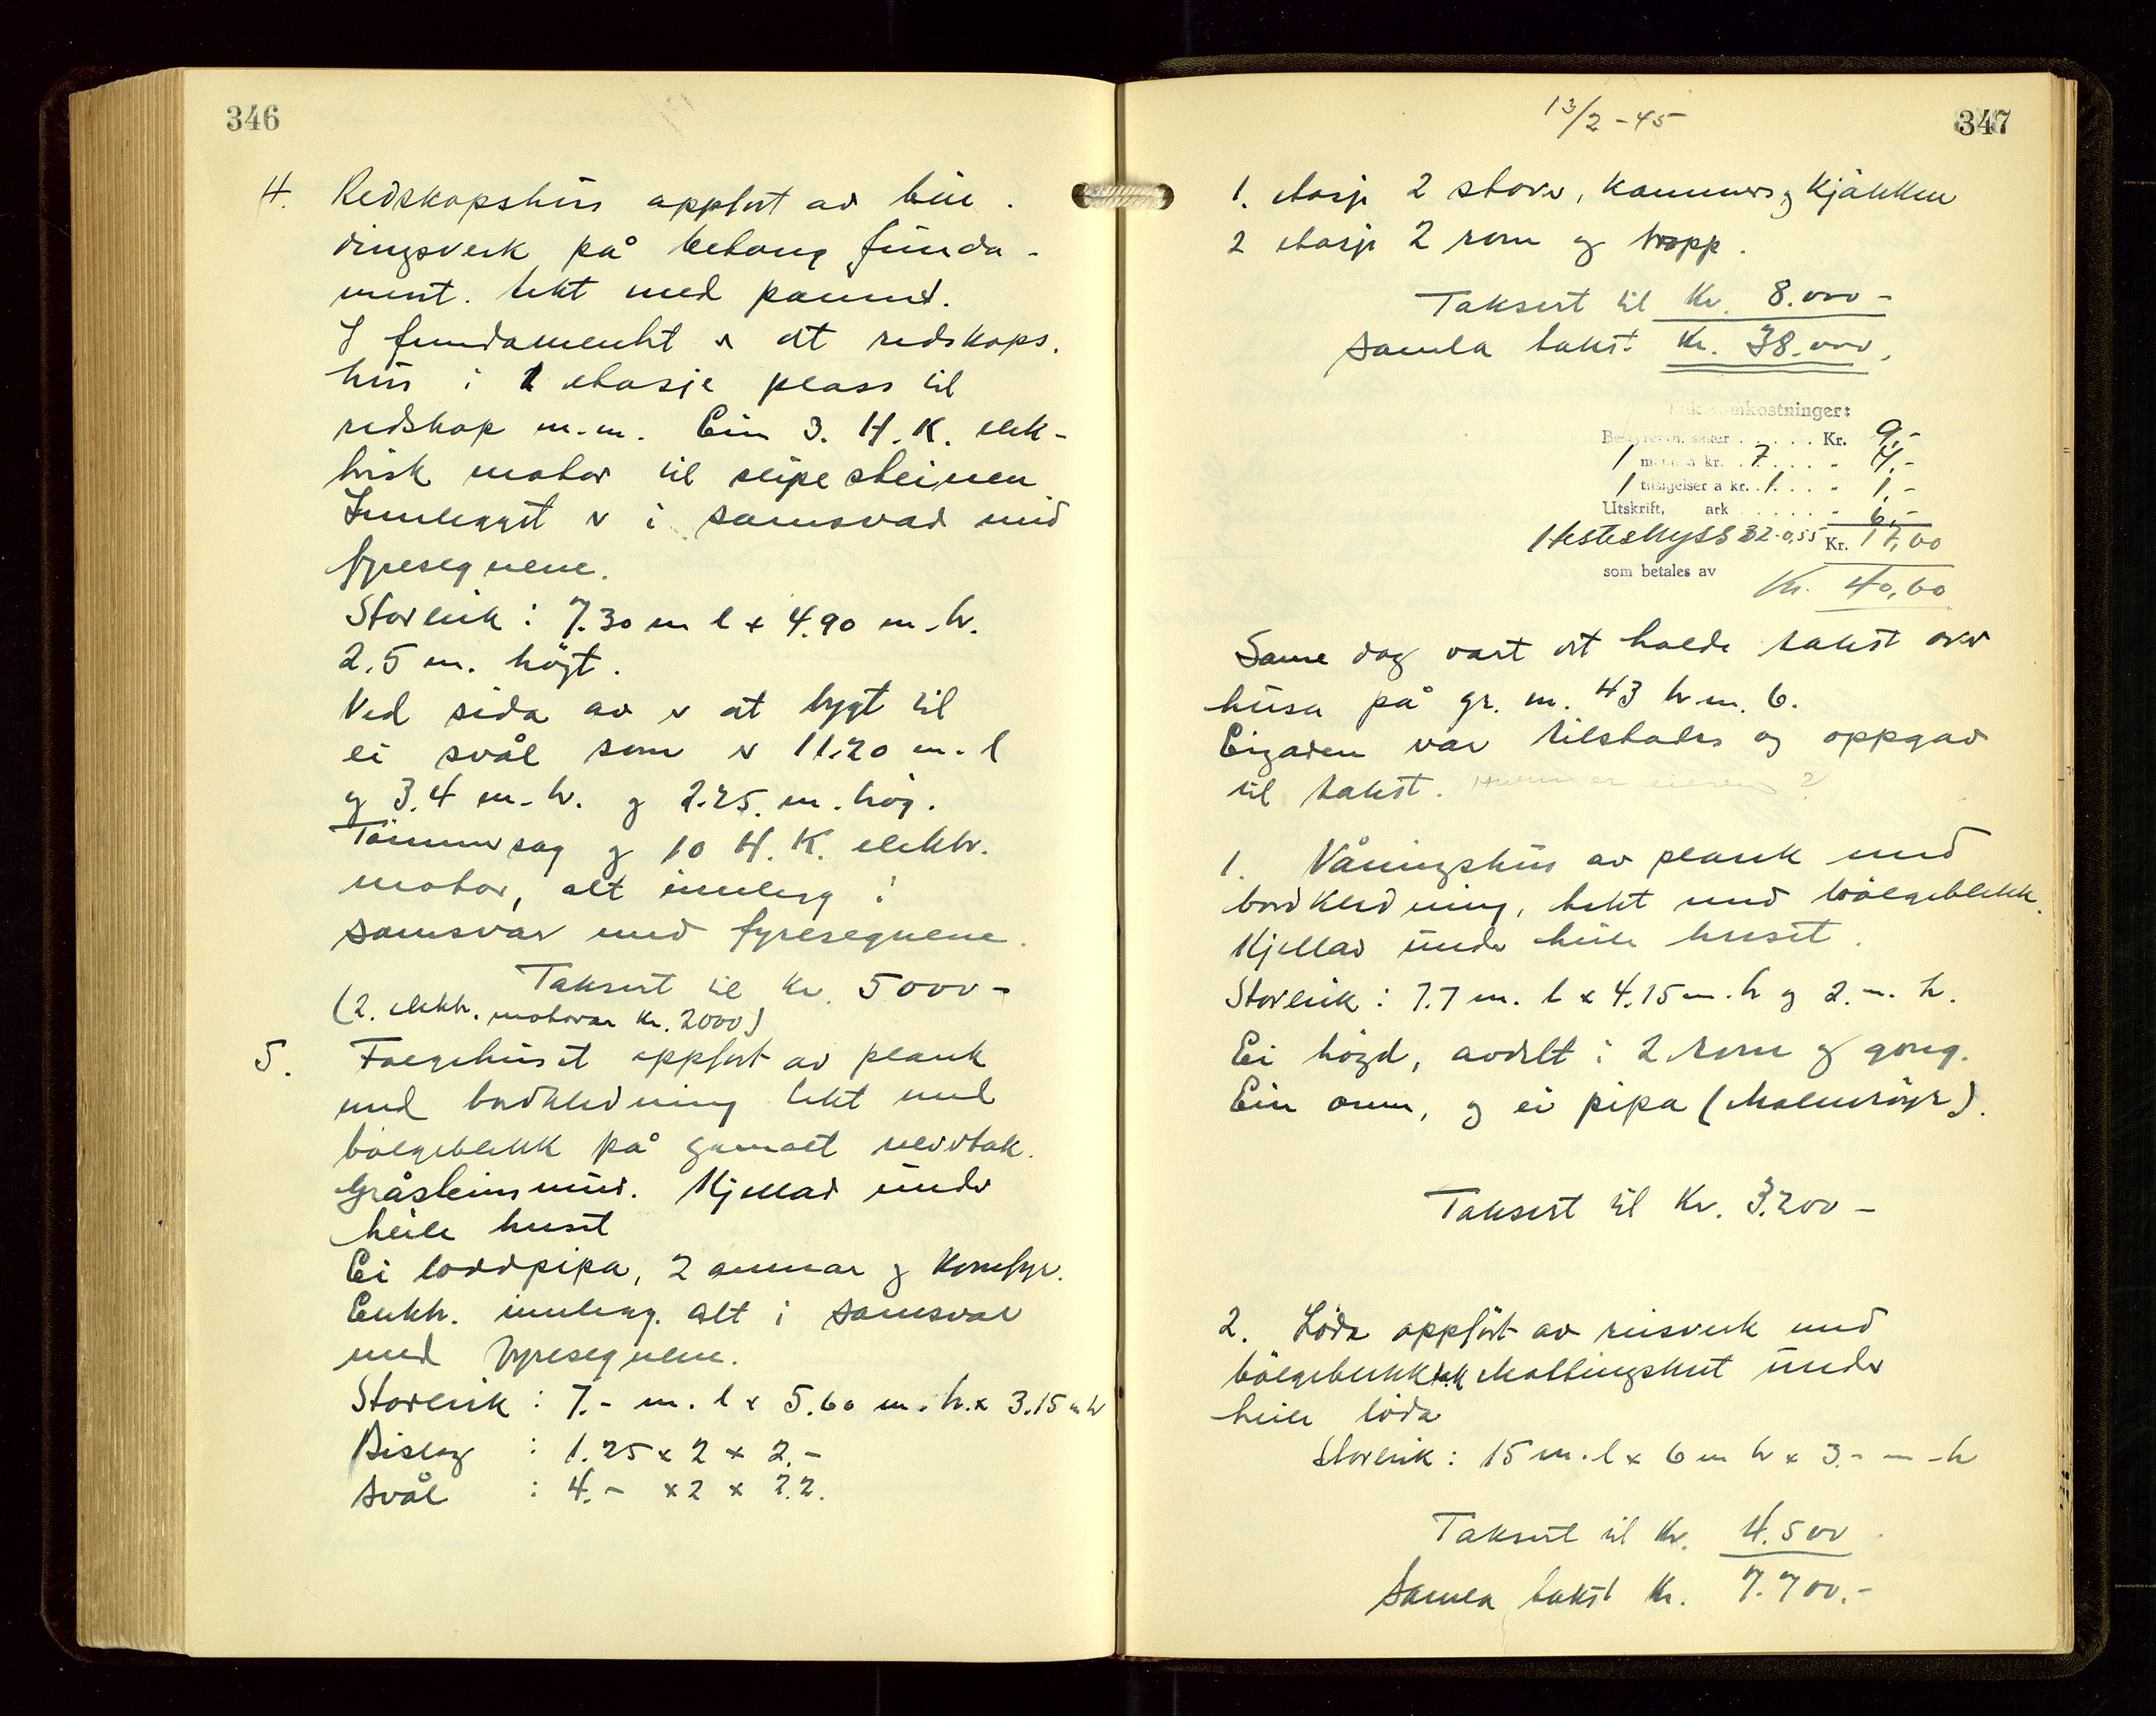 346
4. Redskapshus oppført av bin-
dingsverk på betong funda-
ment. tekt med pannes.
I fundamentet er det redskaps-
hus i 1 etasje plass til
redskap m.m. Ein 3. H.K. elek-
trisk motor til slipesteinen
Innlegget er i samsvar med
fyresegnene.
Storleik: 7.30 m l x 4.90 m. br.
2.5 m. høgt.
Ved sida av er det bygt til
ei svål som er 11.20 m. l
og 3.4 m. br. og 2.25 m. høg.
Tømmersag og 10 H.K. elektr.
motor, alt innlegg i
samsvar med fyresegnene.
Taksert til kr. 5000 -
(2. elektr. motorar kr. 2000)
5. Følgehuset oppført av plank
med bordkledning tekt med
bølgeblekk på gamalt nevertak.
Gråsteinsmur. Kjellar under
heile huset
Ei loddpipa, 2 omnar og Komfyr.
Elektr. innlegg. alt i samsvar
med fyresegnene.
Storleik: 7.- m. l x 5.60 m. br. x 3.15 m h
Bislag : 1.25 x 2 x 2.-
Svål : 4.- x 2 x 2.2.
13/2-45
347
1. etasje 2 stover, kammers og kjøkken
2 etasje 2 rom og trapp.
Taksert til Kr. 8.000 -
Samla takst Kr. 38.000,
omkostninger:
Kr. 9,-
1 kr. 7 4,-
1 tilsigelser a kr. 1 1,-
Utskrift, ark 6,-
Hesteskyss 32-0,55 Kr. 17,60
som betales av
Kr. 40,60
Same dag vart det halde takst over
husa på gr. nr. 43 br. nr. 6.
Eigaren var tilstades og oppgav
til takst. Hvem er eieren?
1. Våningshus av plank med
bordkledning, tekt med bølgeblekk.
Kjellar under heile huset.
Storleik: 7.7 m. l x 4.15 m. br og 2. m. h.
Ei høgd, avdelt i 2 rom og gong.
Ein omn, og ei pipa (Malmrøyr).
Taksert til Kr. 3.200 -
2. Løda oppført av reisverk med
bølgeblekktak Møttingskut under
heile løda
Storleik: 15 m. l x 6 m br x 3.- m - h
Taksert til Kr. 4.500
Samla takst Kr. 7.700.-